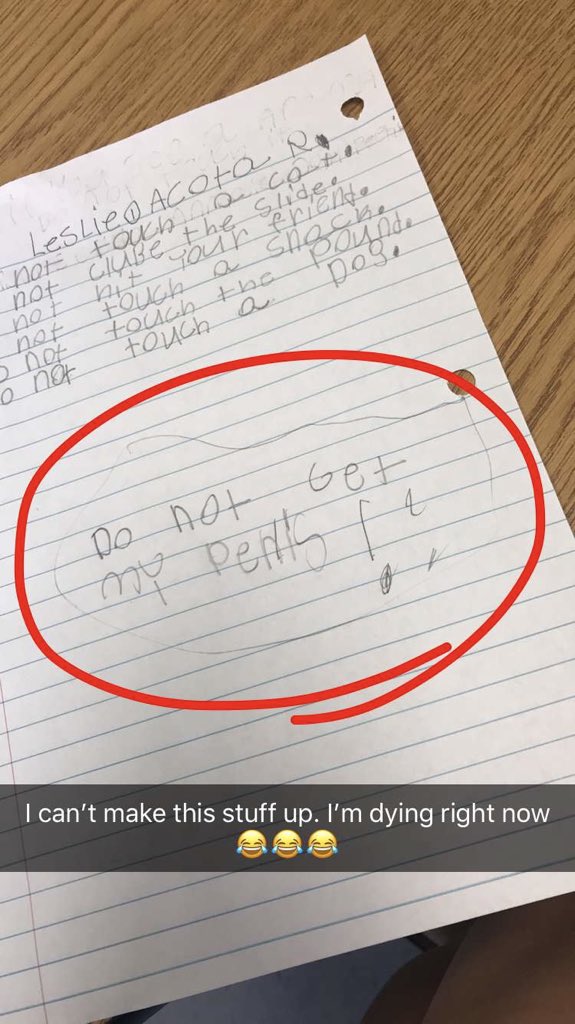 Leslie ACOTA R.
not touch a cat.
not clube the slide.
not hit your friend.
not touch a snack.
o not touch the pound.
o not touch a Dog.
Do not Get
my Penis !
I can't make this stuff up. I'm dying right now
😂😂😂